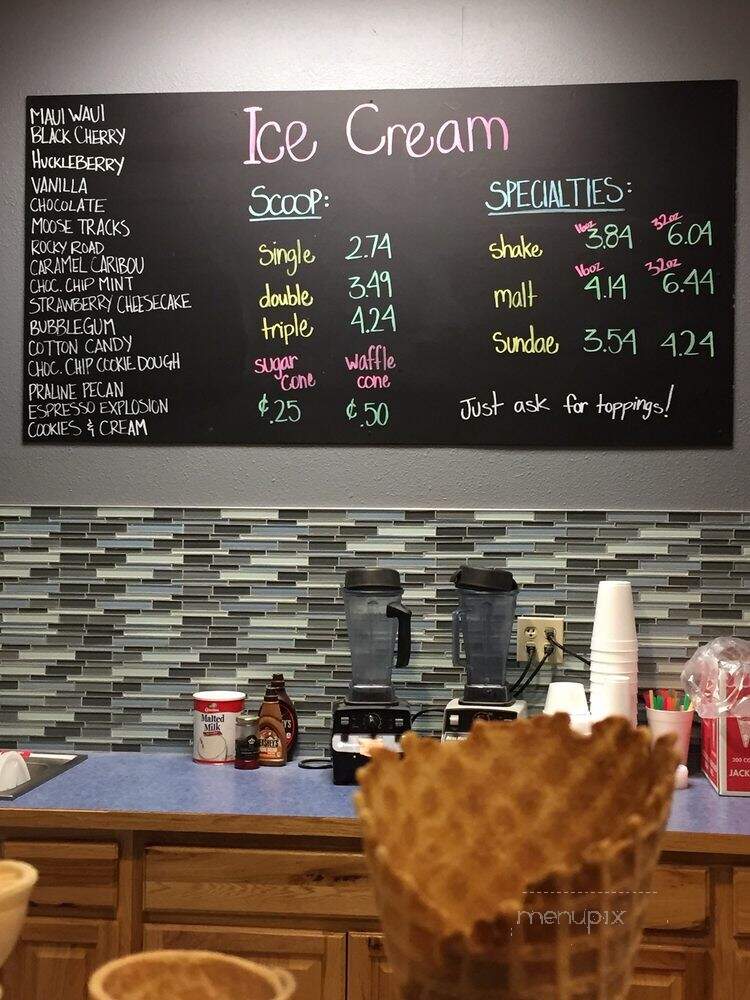 Ice Cream
MAUI WAUI
BLACK CHERRY
HUCKLEBERRY
VANILLA
CHOCOLATE
MOOSE TRACKS
ROCKY ROAD
CARAMEL CARIBOU
CHOC. CHIP MINT
STRAWBERRY CHEESECAKE
BUBBLEGUM
COTTON CANDY
CHOC. CHIP COOKIE DOUGH
PRALINE PECAN
ESPRESSO EXPLOSION
COOKIES & CREAM
SCOOP:
single 2.74
double 3.49
triple 4.24
sugar cone
waffle cone
¢.25 ¢.50
SPECIALTIES:
16oz 32oz
shake 3.84 6.04
16oz 32oz
malt 4.14 6.44
Sundae 3.54 4.24
Just ask for toppings!
Malted
Milk
HERSHEY'S
JACK
menupix